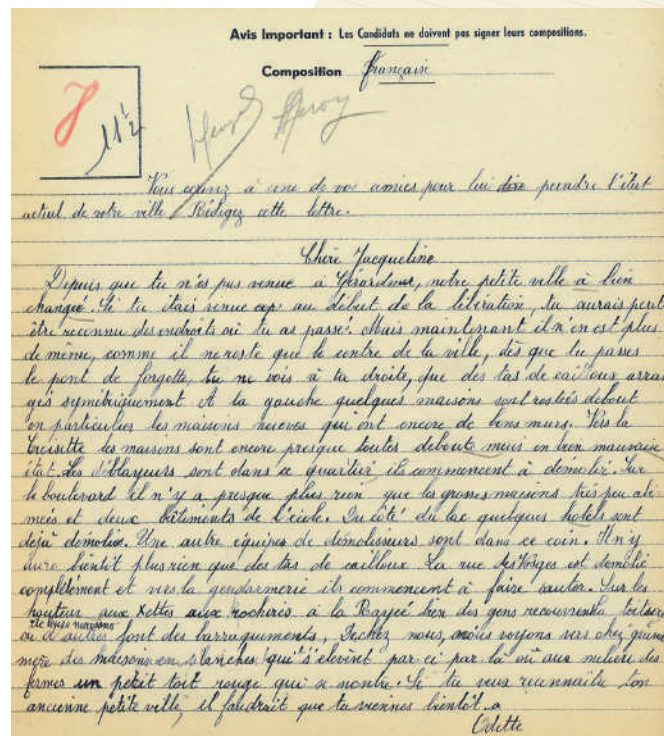 Avis Important : Les Candidats ne doivent pas signer leurs compositions.
Composition française
11½
Vous écrivez à une de vos amies pour lui dire peindre l'état
actuel de votre ville. Rédigez cette lettre.
Chère Jacqueline
Depuis que tu n'es pas venue à Gérardmer, notre petite ville à bien
changé. Si tu étais venue au début de la libération, tu aurais peut
être reconnu des endroits où tu as passé. Mais maintenant il n'en est plus
de même, comme il ne reste que le centre de la ville, dès que tu passes
le pont de forgotte, tu ne vois à ta droite, que des tas de cailloux arran
gés symétriquement. A ta gauche quelques maisons sont restées debout
en particulier les maisons neuves qui ont encore de bons murs. Vers la
Croisette les maisons sont encore presque toutes debouts mais en bien mauvaise
état. Les déblayeurs sont dans ce quartier ils commencent à démolir. Sur
le boulevard il n'y a presque plus rien que les grosses maisons très peu abi
mées et deux bâtiments de l'école. Du côté du lac quelques hotels sont
déjà démolis. Une autre équipes de démolisseurs sont dans ce coin. Il n'y
aura bientôt plus rien que des tas de cailloux. La rue des Vosges est démolie
complètement et vers la gendarmerie ils commencent à faire sauter. Sur les
hauteur aux Xettes aux rocheris à la Rayée bien des gens recouvrent toitures
de leurs maisons
où d'autres font des barraquements. De chez nous, nous voyons vers chez
mère des maisons en planches qui s'élèvent par ci par là où aux milieu des
fermes un petit toit rouge qui se montre. Si tu veux reconnaitre ton
ancienne petite ville, il faudrait que tu viennes bientôt.
Odette